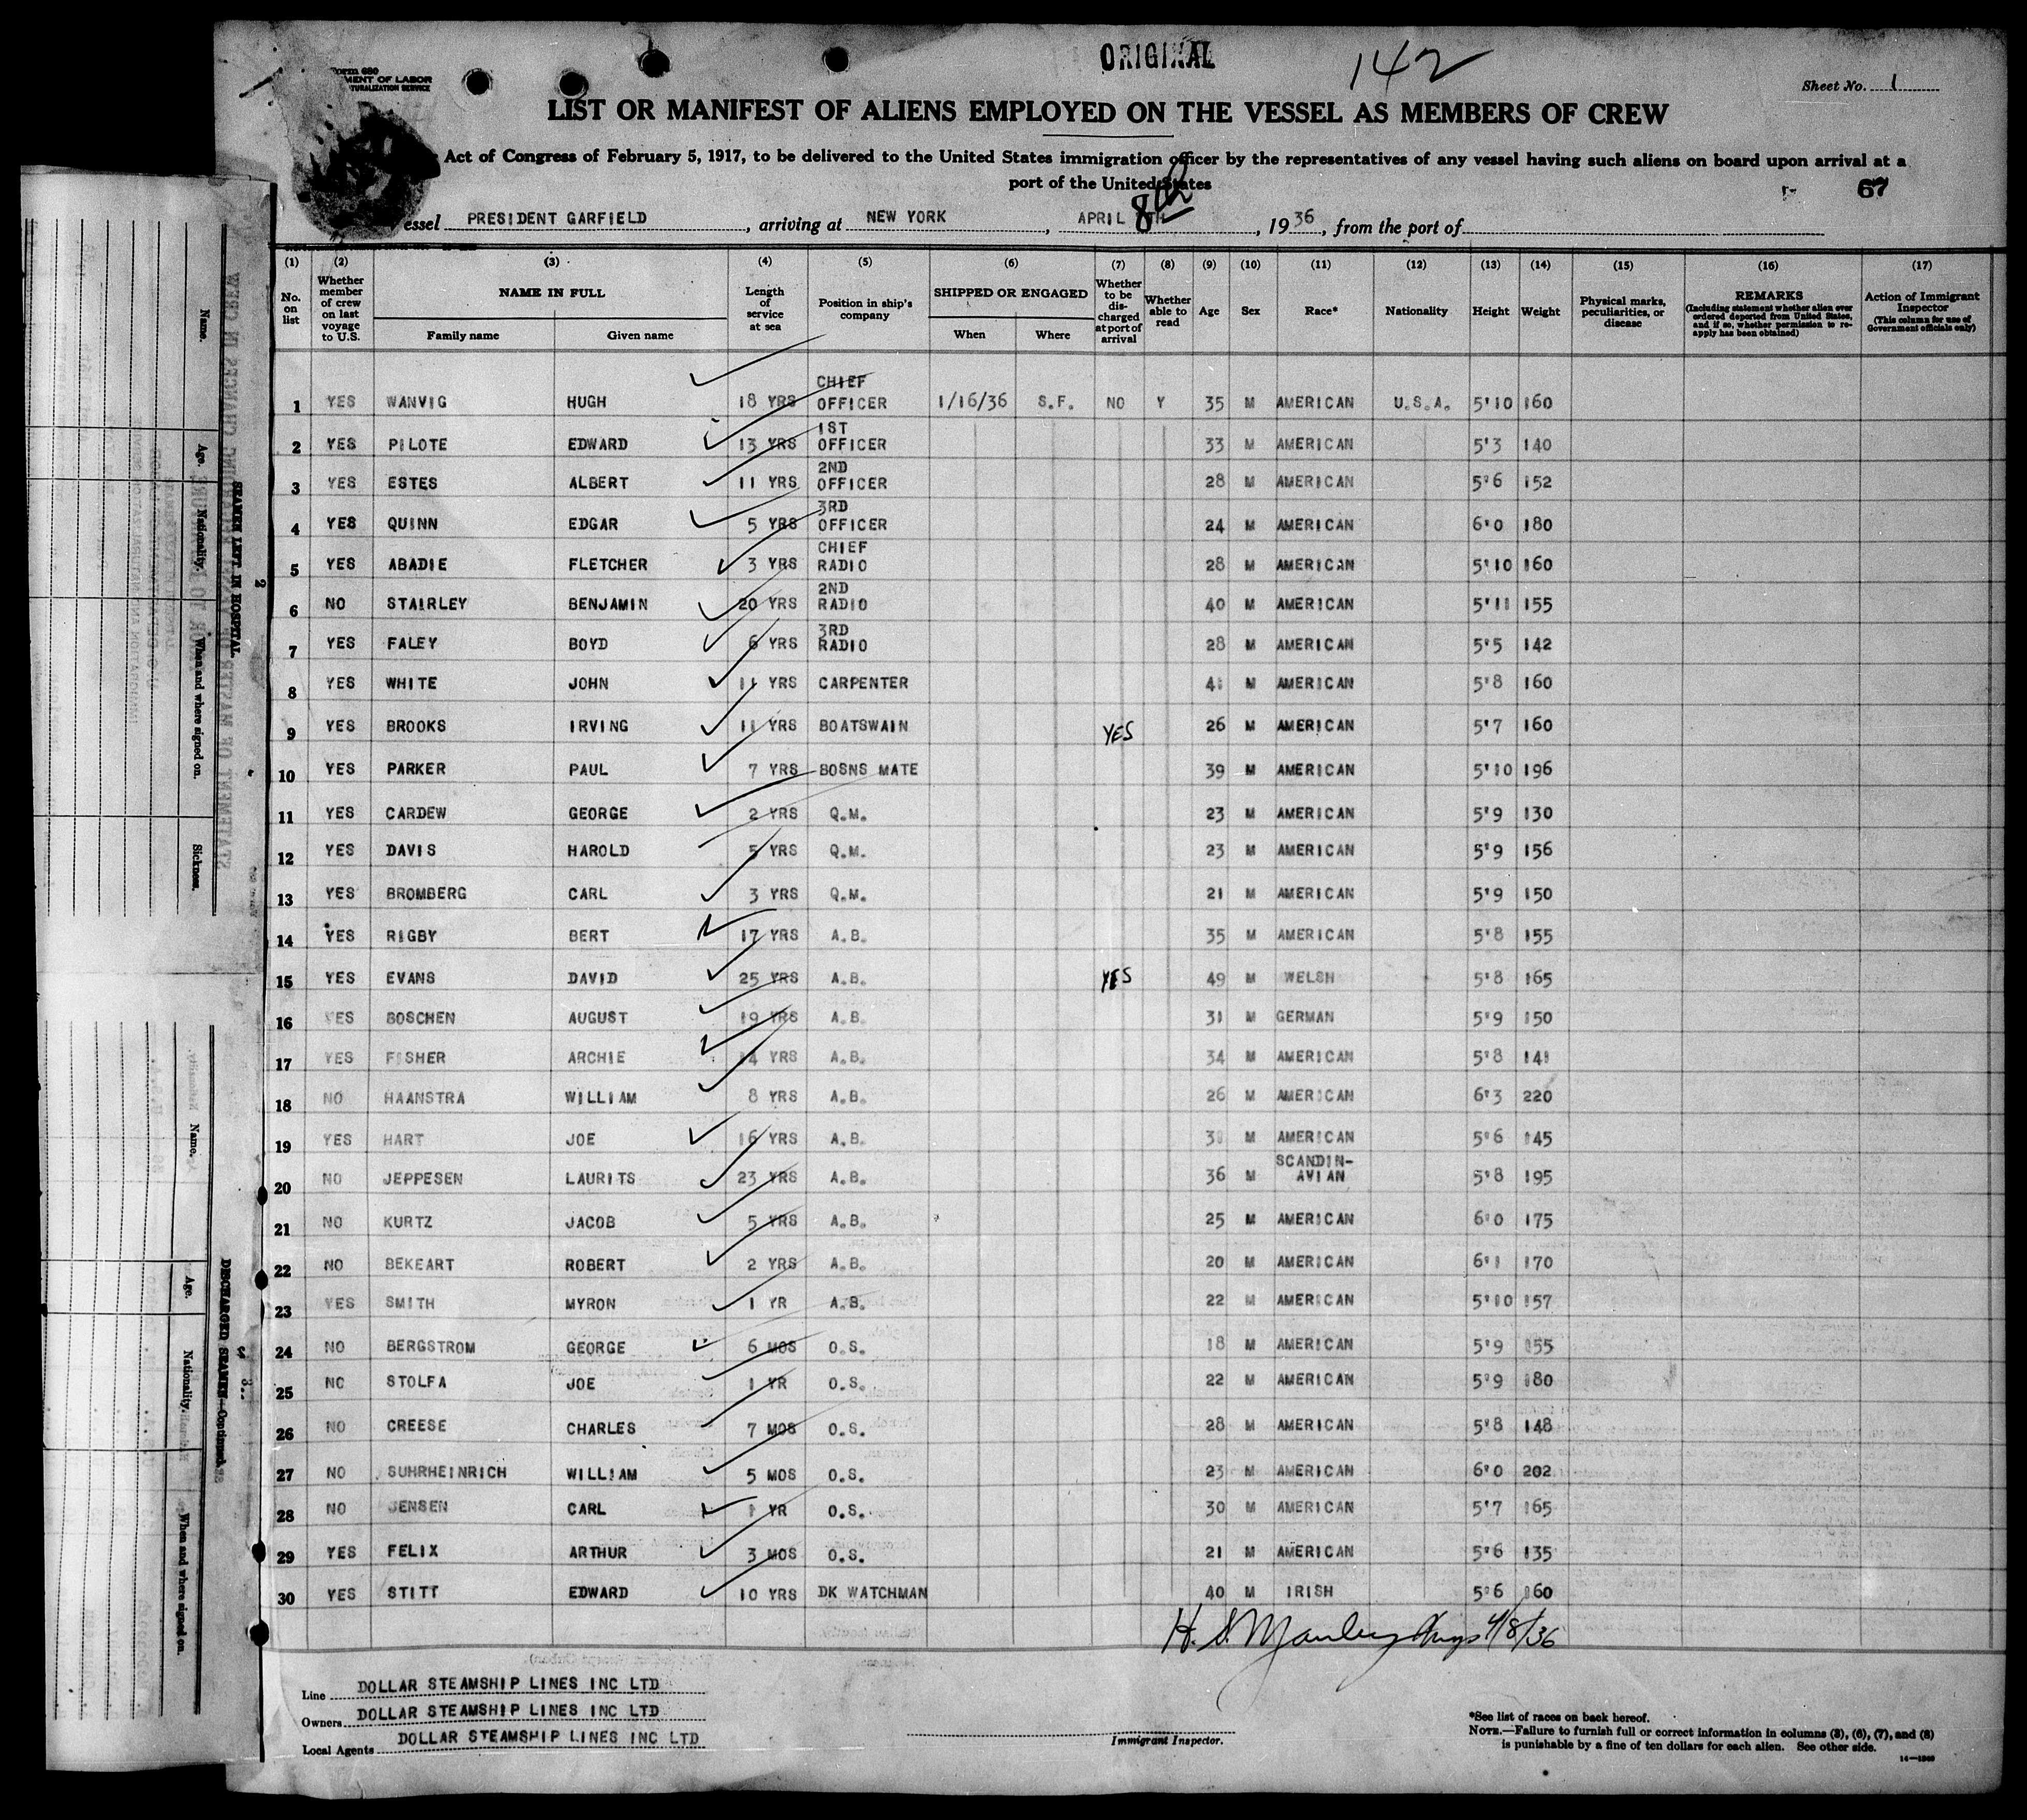 ORIGINAL
142
Form 680
MENT OF LABOR
TURALIZATION SERVICE
Sheet No. 1
LIST OR MANIFEST OF ALIENS EMPLOYED ON THE VESSEL AS MEMBERS OF CREW
Act of Congress of February 5, 1917, to be delivered to the United States immigration officer by the representatives of any vessel having such aliens on board upon arrival at a
port of the United States
67
essel PRESIDENT GARFIELD, arriving at NEW YORK, APRIL 8th, 1936, from the port of
(1) (2) (3) (4) (5) (6) (7) (8) (9) (10) (11) (12) (13) (14) (15) (16) (17)
No. on list
Whether member of crew on last voyage to U.S.
NAME IN FULL
Family name
Given name
Length of service at sea
Position in ship's company
SHIPPED OR ENGAGED
When
Where
Whether to be discharged at port of arrival
Whether able to read
Age
Sex
Race*
Nationality
Height
Weight
Physical marks, peculiarities, or disease
REMARKS
(Including statement whether alien ever ordered deported from United States, and if so, whether permission to reapply has been obtained)
Action of Immigrant Inspector
(This column for use of Government officials only)
1 YES WANVIG HUGH 18 YRS CHIEF OFFICER 1/16/36 S.F. NO Y 35 M AMERICAN U.S.A. 5'10 160
2 YES PILOTE EDWARD 13 YRS 1ST OFFICER 33 M AMERICAN 5'3 140
3 YES ESTES ALBERT 11 YRS 2ND OFFICER 28 M AMERICAN 5'6 152
4 YES QUINN EDGAR 5 YRS 3RD OFFICER 24 M AMERICAN 6'0 180
5 YES ABADIE FLETCHER 3 YRS CHIEF RADIO 28 M AMERICAN 5'10 160
6 NO STAIRLEY BENJAMIN 20 YRS 2ND RADIO 40 M AMERICAN 5'11 155
7 YES FALEY BOYD 6 YRS 3RD RADIO 28 M AMERICAN 5'5 142
8 YES WHITE JOHN 11 YRS CARPENTER 41 M AMERICAN 5'8 160
9 YES BROOKS IRVING 11 YRS BOATSWAIN YES 26 M AMERICAN 5'7 160
10 YES PARKER PAUL 7 YRS BOSNS MATE 39 M AMERICAN 5'10 196
11 YES CARDEW GEORGE 2 YRS Q.M. 23 M AMERICAN 5'9 130
12 YES DAVIS HAROLD 5 YRS Q.M. 23 M AMERICAN 5'9 156
13 YES BROMBERG CARL 3 YRS Q.M. 21 M AMERICAN 5'9 150
14 YES RIGBY BERT 17 YRS A.B. 35 M AMERICAN 5'8 155
15 YES EVANS DAVID 25 YRS A.B. YES 49 M WELSH 5'8 165
16 YES BOSCHEN AUGUST 19 YRS A.B. 31 M GERMAN 5'9 150
17 YES FISHER ARCHIE 14 YRS A.B. 34 M AMERICAN 5'8 141
18 NO HAANSTRA WILLIAM 8 YRS A.B. 26 M AMERICAN 6'3 220
19 YES HART JOE 16 YRS A.B. M AMERICAN 5'6 145
20 NO JEPPESEN LAURITS 23 YRS A.B. 36 M SCANDIN-AVIAN 5'8 195
21 NO KURTZ JACOB 5 YRS A.B. 25 M AMERICAN 6'0 175
22 NO BEKEART ROBERT 2 YRS A.B. 20 M AMERICAN 6'1 170
23 YES SMITH MYRON 1 YR A.B. 22 M AMERICAN 5'10 157
24 NO BERGSTROM GEORGE 6 MOS O.S. 18 M AMERICAN 5'9 155
25 NO STOLFA JOE 1 YR O.S. 22 M AMERICAN 5'9 180
26 NO CREESE CHARLES 7 MOS O.S. 28 M AMERICAN 5'8 148
27 NO SUHRHEINRICH WILLIAM 5 MOS O.S. 23 M AMERICAN 6'0 202
28 NO JENSEN CARL 1 YR O.S. 30 M AMERICAN 5'7 165
29 YES FELIX ARTHUR 3 MOS O.S. 21 M AMERICAN 5'6 135
30 YES STITT EDWARD 10 YRS DK WATCHMAN 40 M IRISH 5'6 160
H. S. Manley 4/8/36
Line DOLLAR STEAMSHIP LINES INC LTD
Owners DOLLAR STEAMSHIP LINES INC LTD
Local Agents DOLLAR STEAMSHIP LINES INC LTD
Immigrant Inspector.
*See list of races on back hereof.
NOTE.—Failure to furnish full or correct information in columns (3), (6), (7), and (8)
is punishable by a fine of ten dollars for each alien. See other side.
SEAMEN LEFT IN HOSPITAL
Name.
Age.
Nationality.
When and where signed on.
Sickness.
DISCHARGED SEAMEN—Continued
Name.
Age.
Nationality.
When and where signed on.